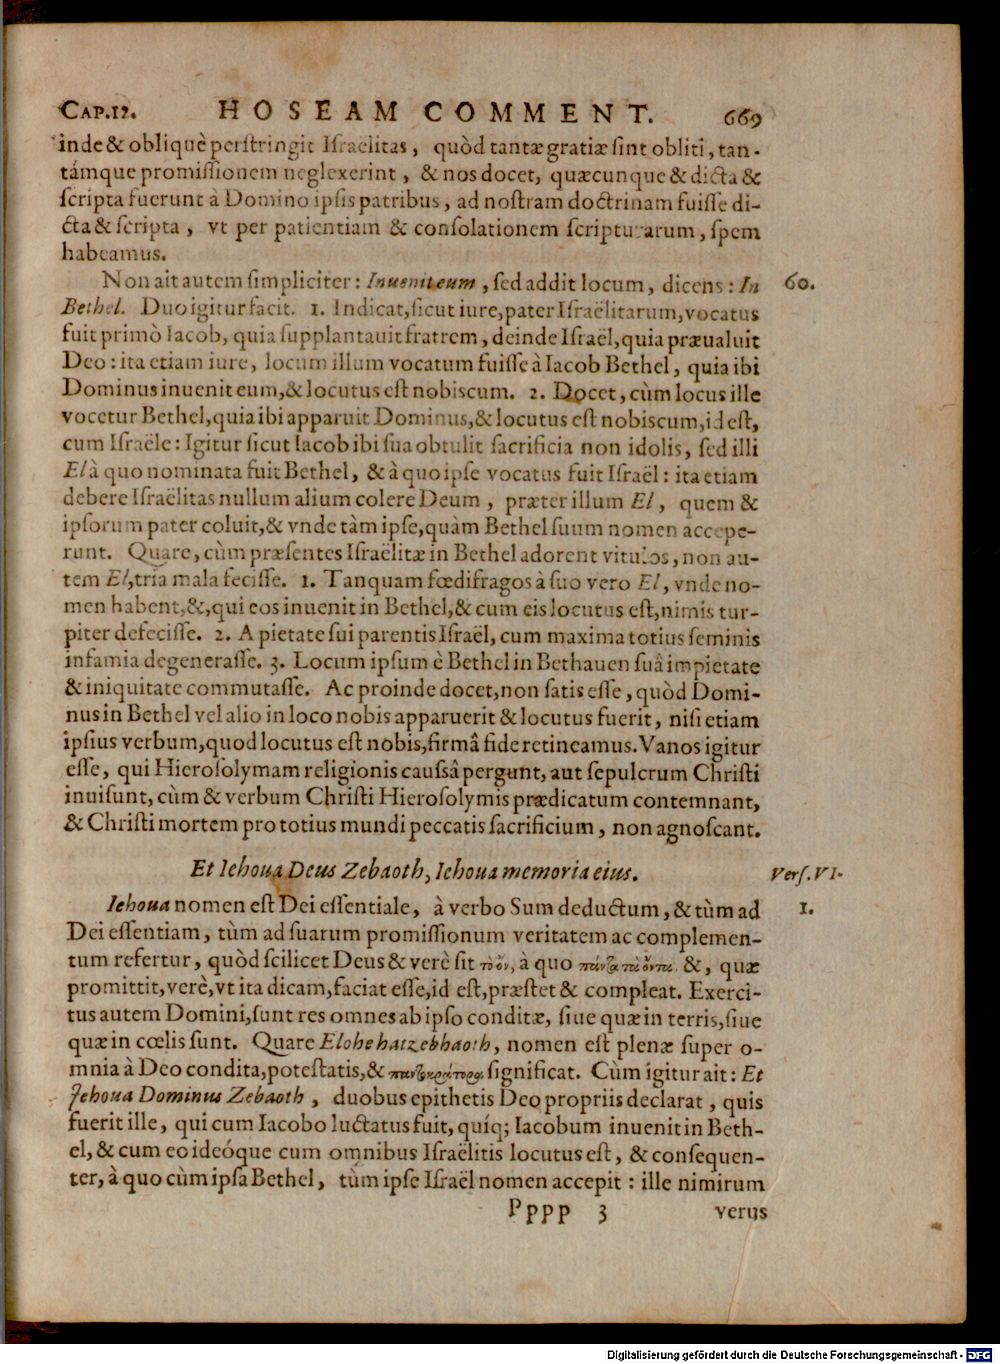 CAP.12. HOSEAM COMMENT. 669
inde & obliquè perstringit Israelitas, quòd tantæ gratiæ sint obliti, tan-
támque promissionem neglexerint, & nos docet, quæcunque & dicta &
scripta fuerunt à Domino ipsis patribus, ad nostram doctrinam fuisse di-
cta & scripta, vt per patientiam & consolationem scripturarum, spem
habeamus.
Non ait autem simpliciter: Inuenit eum, sed addit locum, dicens: In 60.
Bethel. Duo igitur facit. 1. Indicat, sicut iure, pater Israëlitarum, vocatus
fuit primò Iacob, quia supplantauit fratrem, deinde Israël, quia præualuit
Deo: ita etiam iure, locum illum vocatum fuisse à Iacob Bethel, quia ibi
Dominus inuenit eum, & locutus est nobiscum. 2. Docet, cùm locus ille
vocetur Bethel, quia ibi apparuit Dominus, & locutus est nobiscum, id est,
cum Israële: Igitur sicut Iacob ibi sua obtulit sacrificia non idolis, sed illi
El à quo nominata fuit Bethel, & à quo ipse vocatus fuit Israël: ita etiam
debere Israëlitas nullum alium colere Deum, præter illum El, quem &
ipsorum pater coluit, & vnde tàm ipse, quàm Bethel suum nomen accepe-
runt. Quare, cùm præsentes Israëlitæ in Bethel adorent vitulos, non au-
tem El, tria mala fecisse. 1. Tanquam fœdifragos à suo vero El, vnde no-
men habent, &, qui eos inuenit in Bethel, & cum eis locutus est, nimis tur-
piter defecisse. 2. A pietate sui parentis Israël, cum maxima totius seminis
infamia degenerasse. 3. Locum ipsum è Bethel in Bethauen suâ impietate
& iniquitate commutasse. Ac proinde docet, non satis esse, quòd Domi-
nus in Bethel vel alio in loco nobis apparuerit & locutus fuerit, nisi etiam
ipsius verbum, quod locutus est nobis, firmâ fide retineamus. Vanos igitur
esse, qui Hierosolymam religionis caussâ pergunt, aut sepulcrum Christi
inuisunt, cùm & verbum Christi Hierosolymis prædicatum contemnant,
& Christi mortem pro totius mundi peccatis sacrificium, non agnoscant.
Et Iehoua Deus Zebaoth, Iehoua memoria eius. Vers. VI.
Iehoua nomen est Dei essentiale, à verbo Sum deductum, & tùm ad 1.
Dei essentiam, tùm ad suarum promissionum veritatem ac complemen-
tum refertur, quòd scilicet Deus & verè sit τὸ ὄν, à quo πάντα τὰ ὄντα. &, quæ
promittit, verè, vt ita dicam, faciat esse, id est, præstet & compleat. Exerci-
tus autem Domini, sunt res omnes ab ipso conditæ, siue quæ in terris, siue
quæ in cœlis sunt. Quare Elohe hatzebhaoth, nomen est plenæ super o-
mnia à Deo condita, potestatis, & παντοκράτορα significat. Cùm igitur ait: Et
Jehoua Dominus Zebaoth, duobus epithetis Deo propriis declarat, quis
fuerit ille, qui cum Iacobo luctatus fuit, quíq; Iacobum inuenit in Beth-
el, & cum eo ideóque cum omnibus Israëlitis locutus est, & consequen-
ter, à quo cùm ipsa Bethel, tùm ipse Israël nomen accepit: ille nimirum
Pppp 3 verus
Digitalisierung gefördert durch die Deutsche Forschungsgemeinschaft - DFG